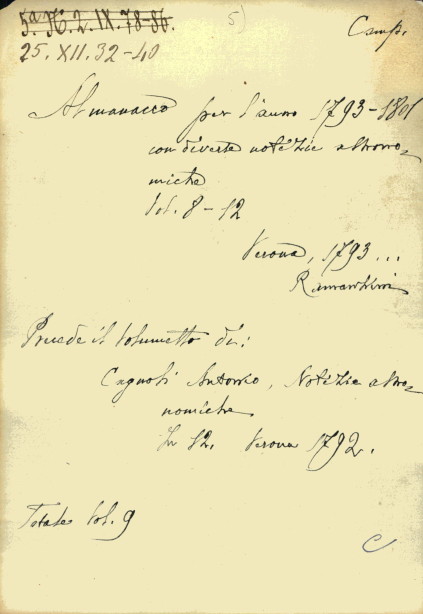 5ª N. 2. IX. 78-86. 5)
25. XII. 32-40 Camp.
Almanacco per l'anno 1793-1801
con diverse notizie astrono-
miche
Vol. 8 - 12
Verona, 1793...
Ramanzini
Precede il Volumetto di:
Cagnoli Antonio, Notizie astro-
nomiche
In 12. Verona 1792.
Totale Vol. 9
C